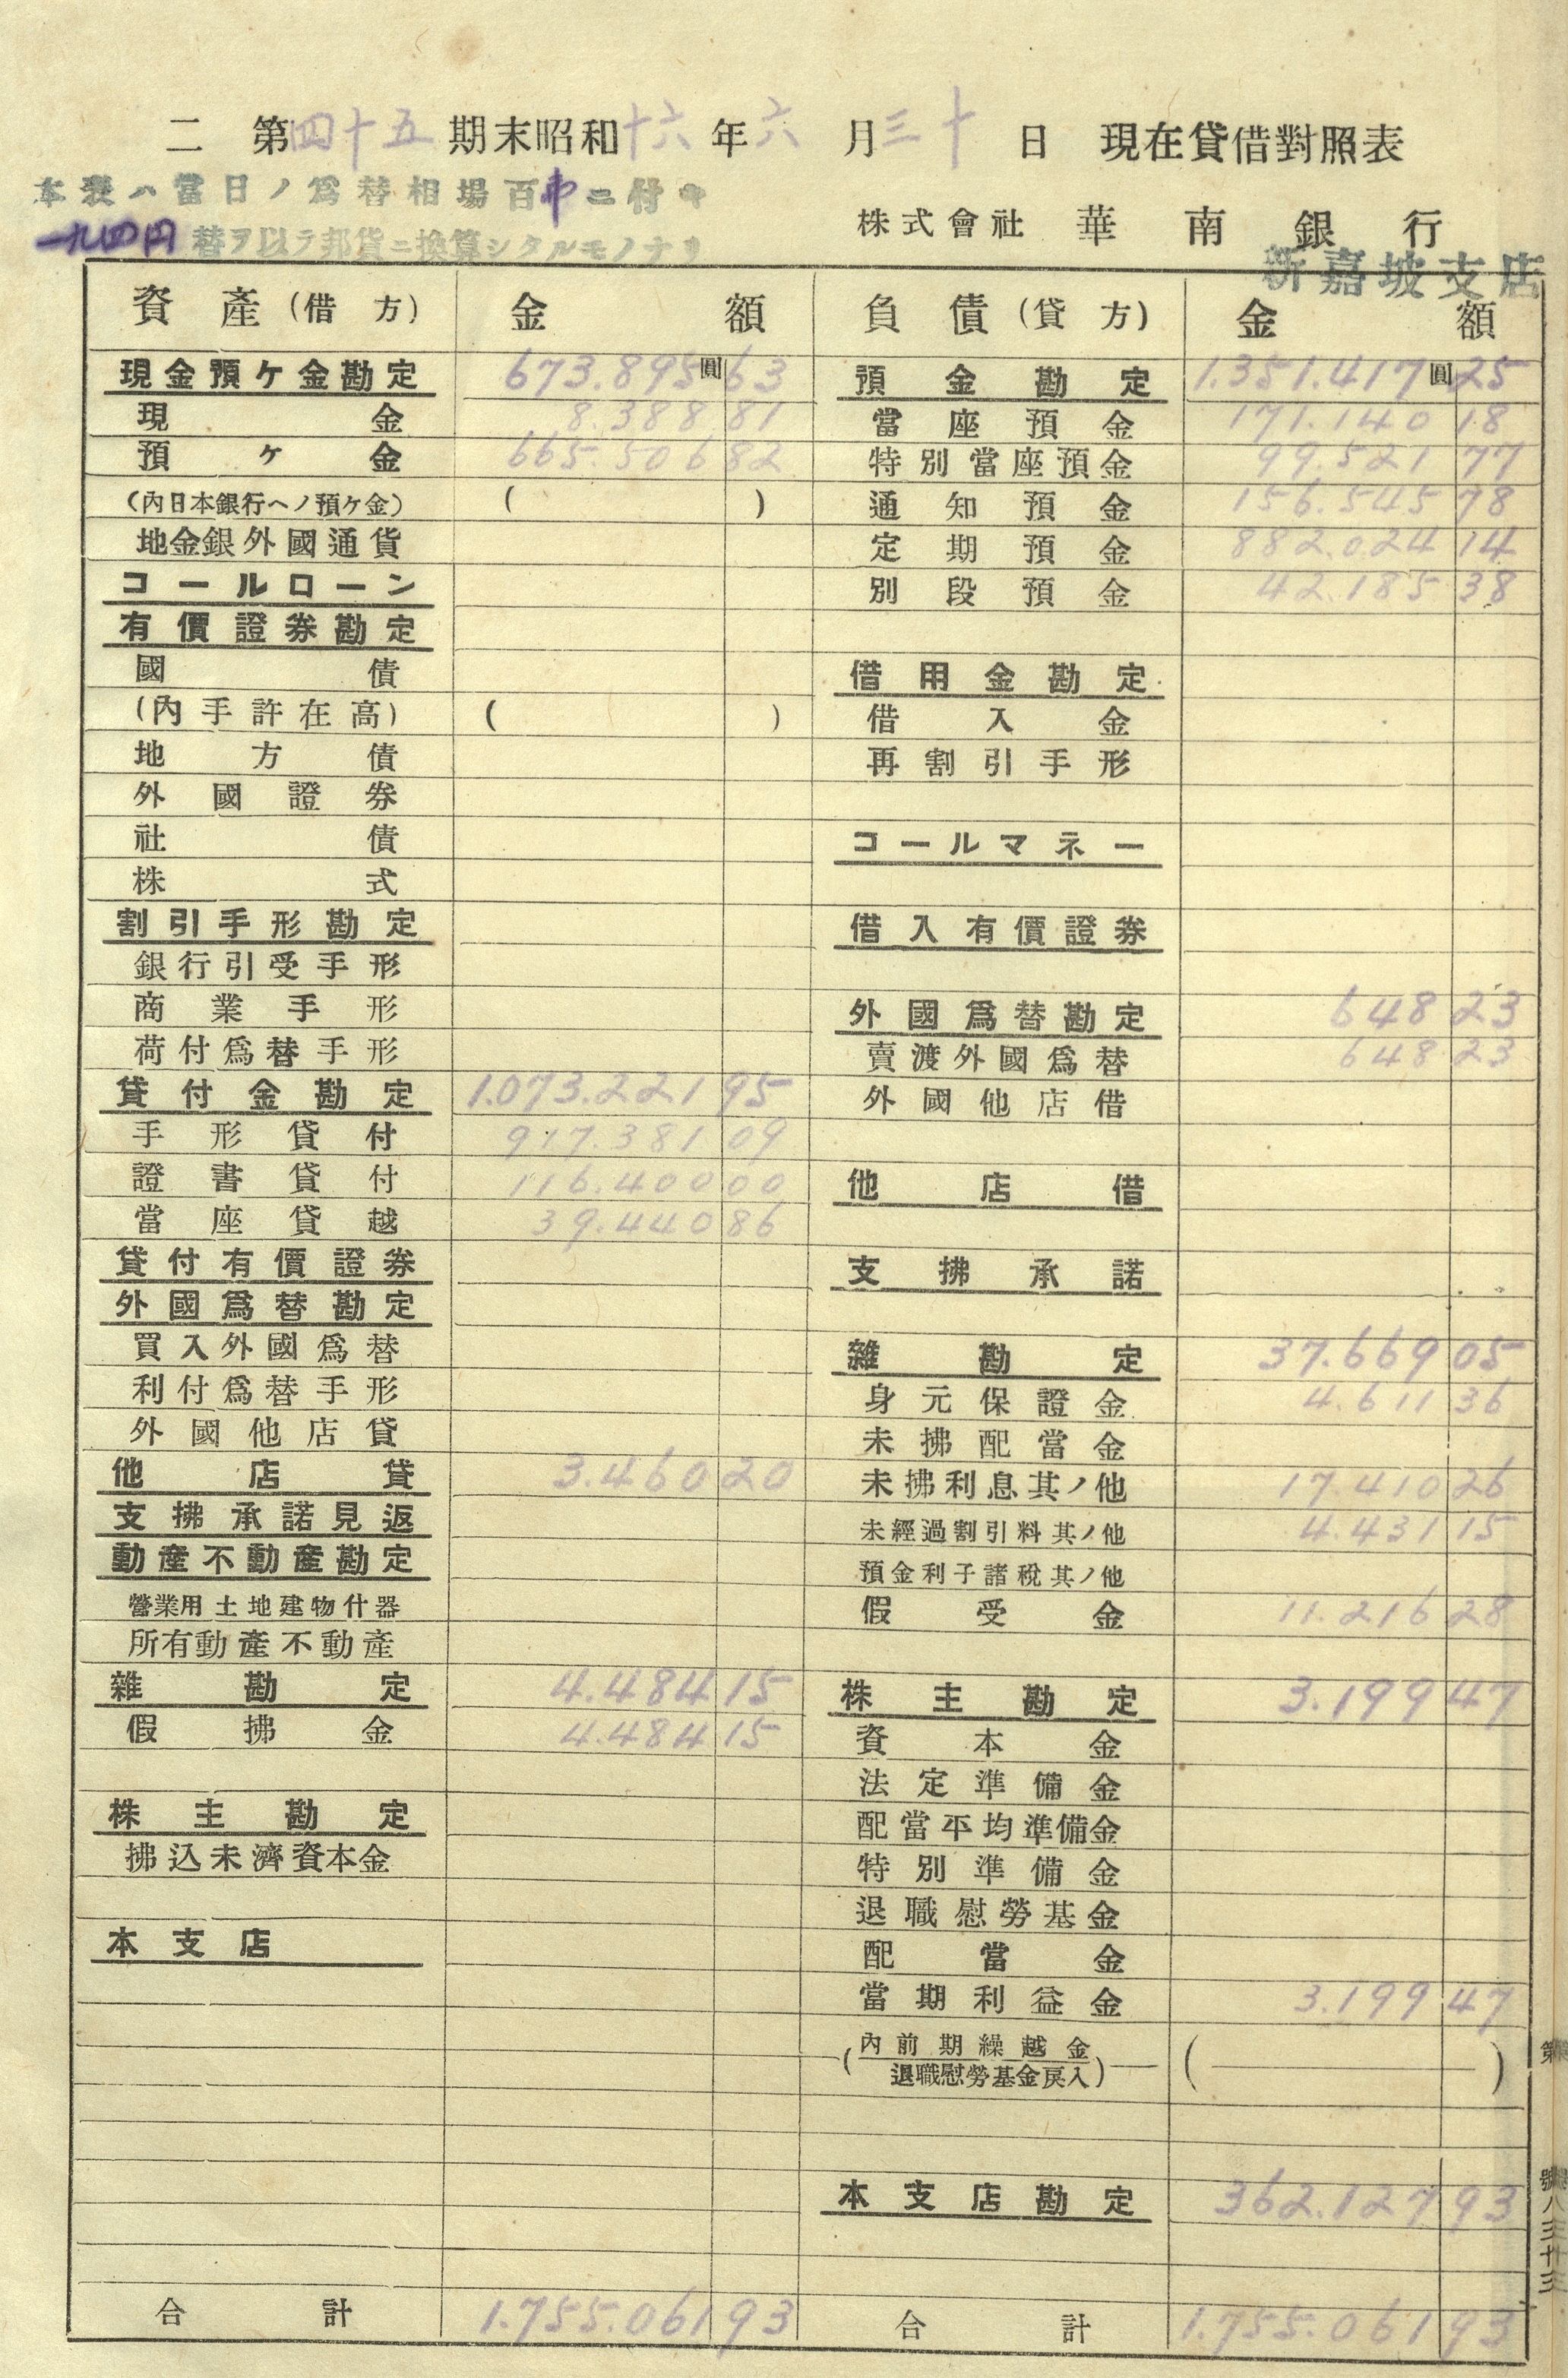 二 第四十五期末昭和十六年六月三十日 現在貸借對照表
本表ハ當日ノ爲替相場百弗ニ付キ
一九四円替ヲ以テ邦貨ニ換算シタルモノナリ
株式會社 華南銀行
新嘉坡支店
資產(借方) 金額
現金預ケ金勘定 673.895圓63
現金 8.388 81
預ケ金 665.506 82
(內日本銀行ヘノ預ケ金) ( )
地金銀外國通貨
コールローン
有價證券勘定
國債
(內手許在高) ( )
地方債
外國證券
社債
株式
割引手形勘定
銀行引受手形
商業手形
荷付爲替手形
貸付金勘定 1.073.221 95
手形貸付 917.381 09
證書貸付 116.400 00
當座貸越 39.440 86
貸付有價證券
外國爲替勘定
買入外國爲替
利付爲替手形
外國他店貸
他店貸 3.460 20
支拂承諾見返
動產不動產勘定
營業用土地建物什器
所有動產不動產
雜勘定 4.484 15
假拂金 4.484 15
株主勘定
拂込未濟資本金
本支店
合計 1.755.061 93
負債(貸方) 金額
預金勘定 1.351.417圓25
當座預金 171.140 18
特別當座預金 99.521 77
通知預金 156.545 78
定期預金 882.024 14
別段預金 42.185 38
借用金勘定
借入金
再割引手形
コールマネー
借入有價證券
外國爲替勘定 648 23
賣渡外國爲替 648 23
外國他店借
他店借
支拂承諾
雜勘定 37.669 05
身元保證金 4.611 36
未拂配當金
未拂利息其ノ他 17.410 26
未經過割引料其ノ他 4.431 15
預金利子諸稅其ノ他
假受金 11.216 28
株主勘定 3.199 47
資本金
法定準備金
配當平均準備金
特別準備金
退職慰勞基金
配當金
當期利益金 3.199 47
(內前期繰越金
退職慰勞基金戾入) ( )
本支店勘定 362.127 93
合計 1.755.061 93